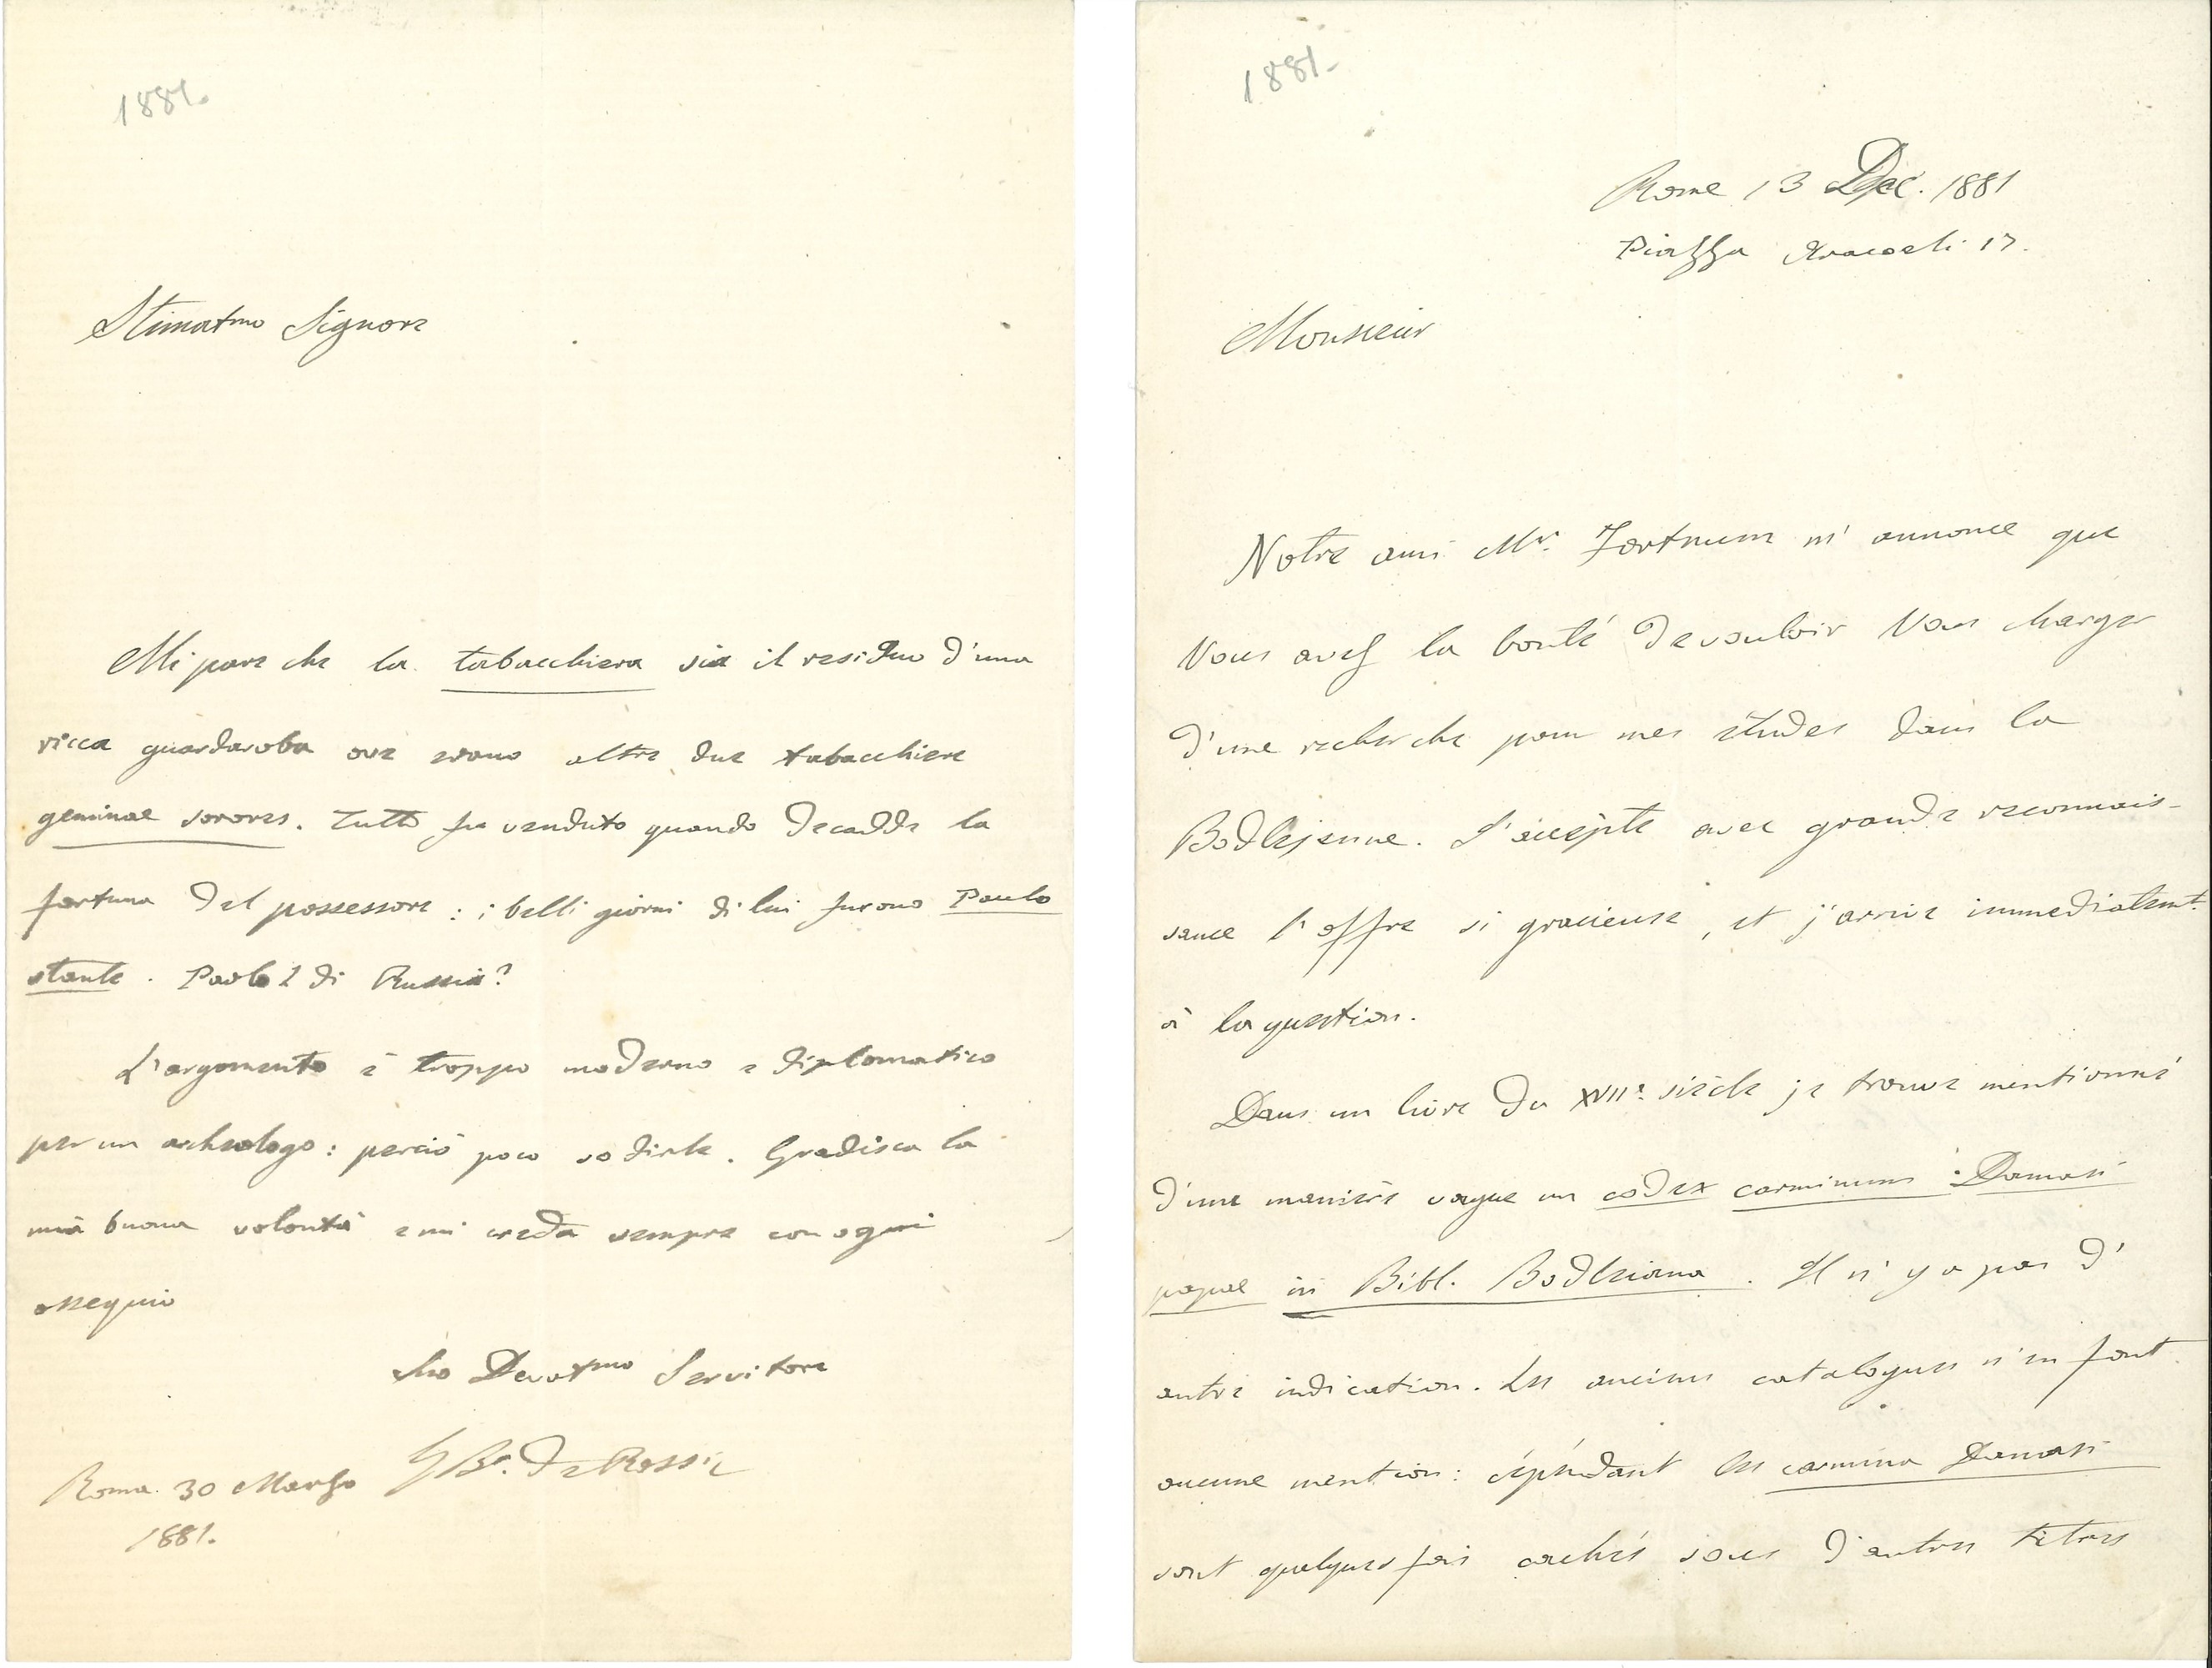 1881.
Stimatmo Signore
Mi pare che la tabacchiera sia il residuo d'una
ricca guardaroba ove erano altre due tabacchiere
geminae sorores. Tutto fu venduto quando decadde la
fortuna del possessore: i belli giorni di lui furono Paulo
stante. Paolo I di Russia?
L'argomento è troppo moderno e diplomatico
per un archeologo: perciò poco so dirle. Gradisca la
mia buona volontà e mi creda sempre con ogni
ossequio
Suo Devotmo Servitore
G Ba. de Rossi
Roma 30 Marzo
1881.
1881-
Rome 13 Déc. 1881
Piazza Aracoeli 17.
Monsieur
Notre ami Mr. Fortnum m'annonce que
Vous avez la bonté de vouloir Vous charger
d'une recherche pour mes études dans la
Bodlejenne. J'accépte avec grande reconnais-
sance l'offre si gracieuse, et j'arrive immediatemt.
à la question.
Dans un livre du XVIIe. siècle je trouve mentionné
d'une manière vague un codex carminum Damasi
papae in Bibl. Bodleiana. Il n'y a pas d'
autre indication. Les anciens catalogues n'en font
aucune mention: cépéndant les carmina Damasi
sont quelques fois cachés sous d'autres titres